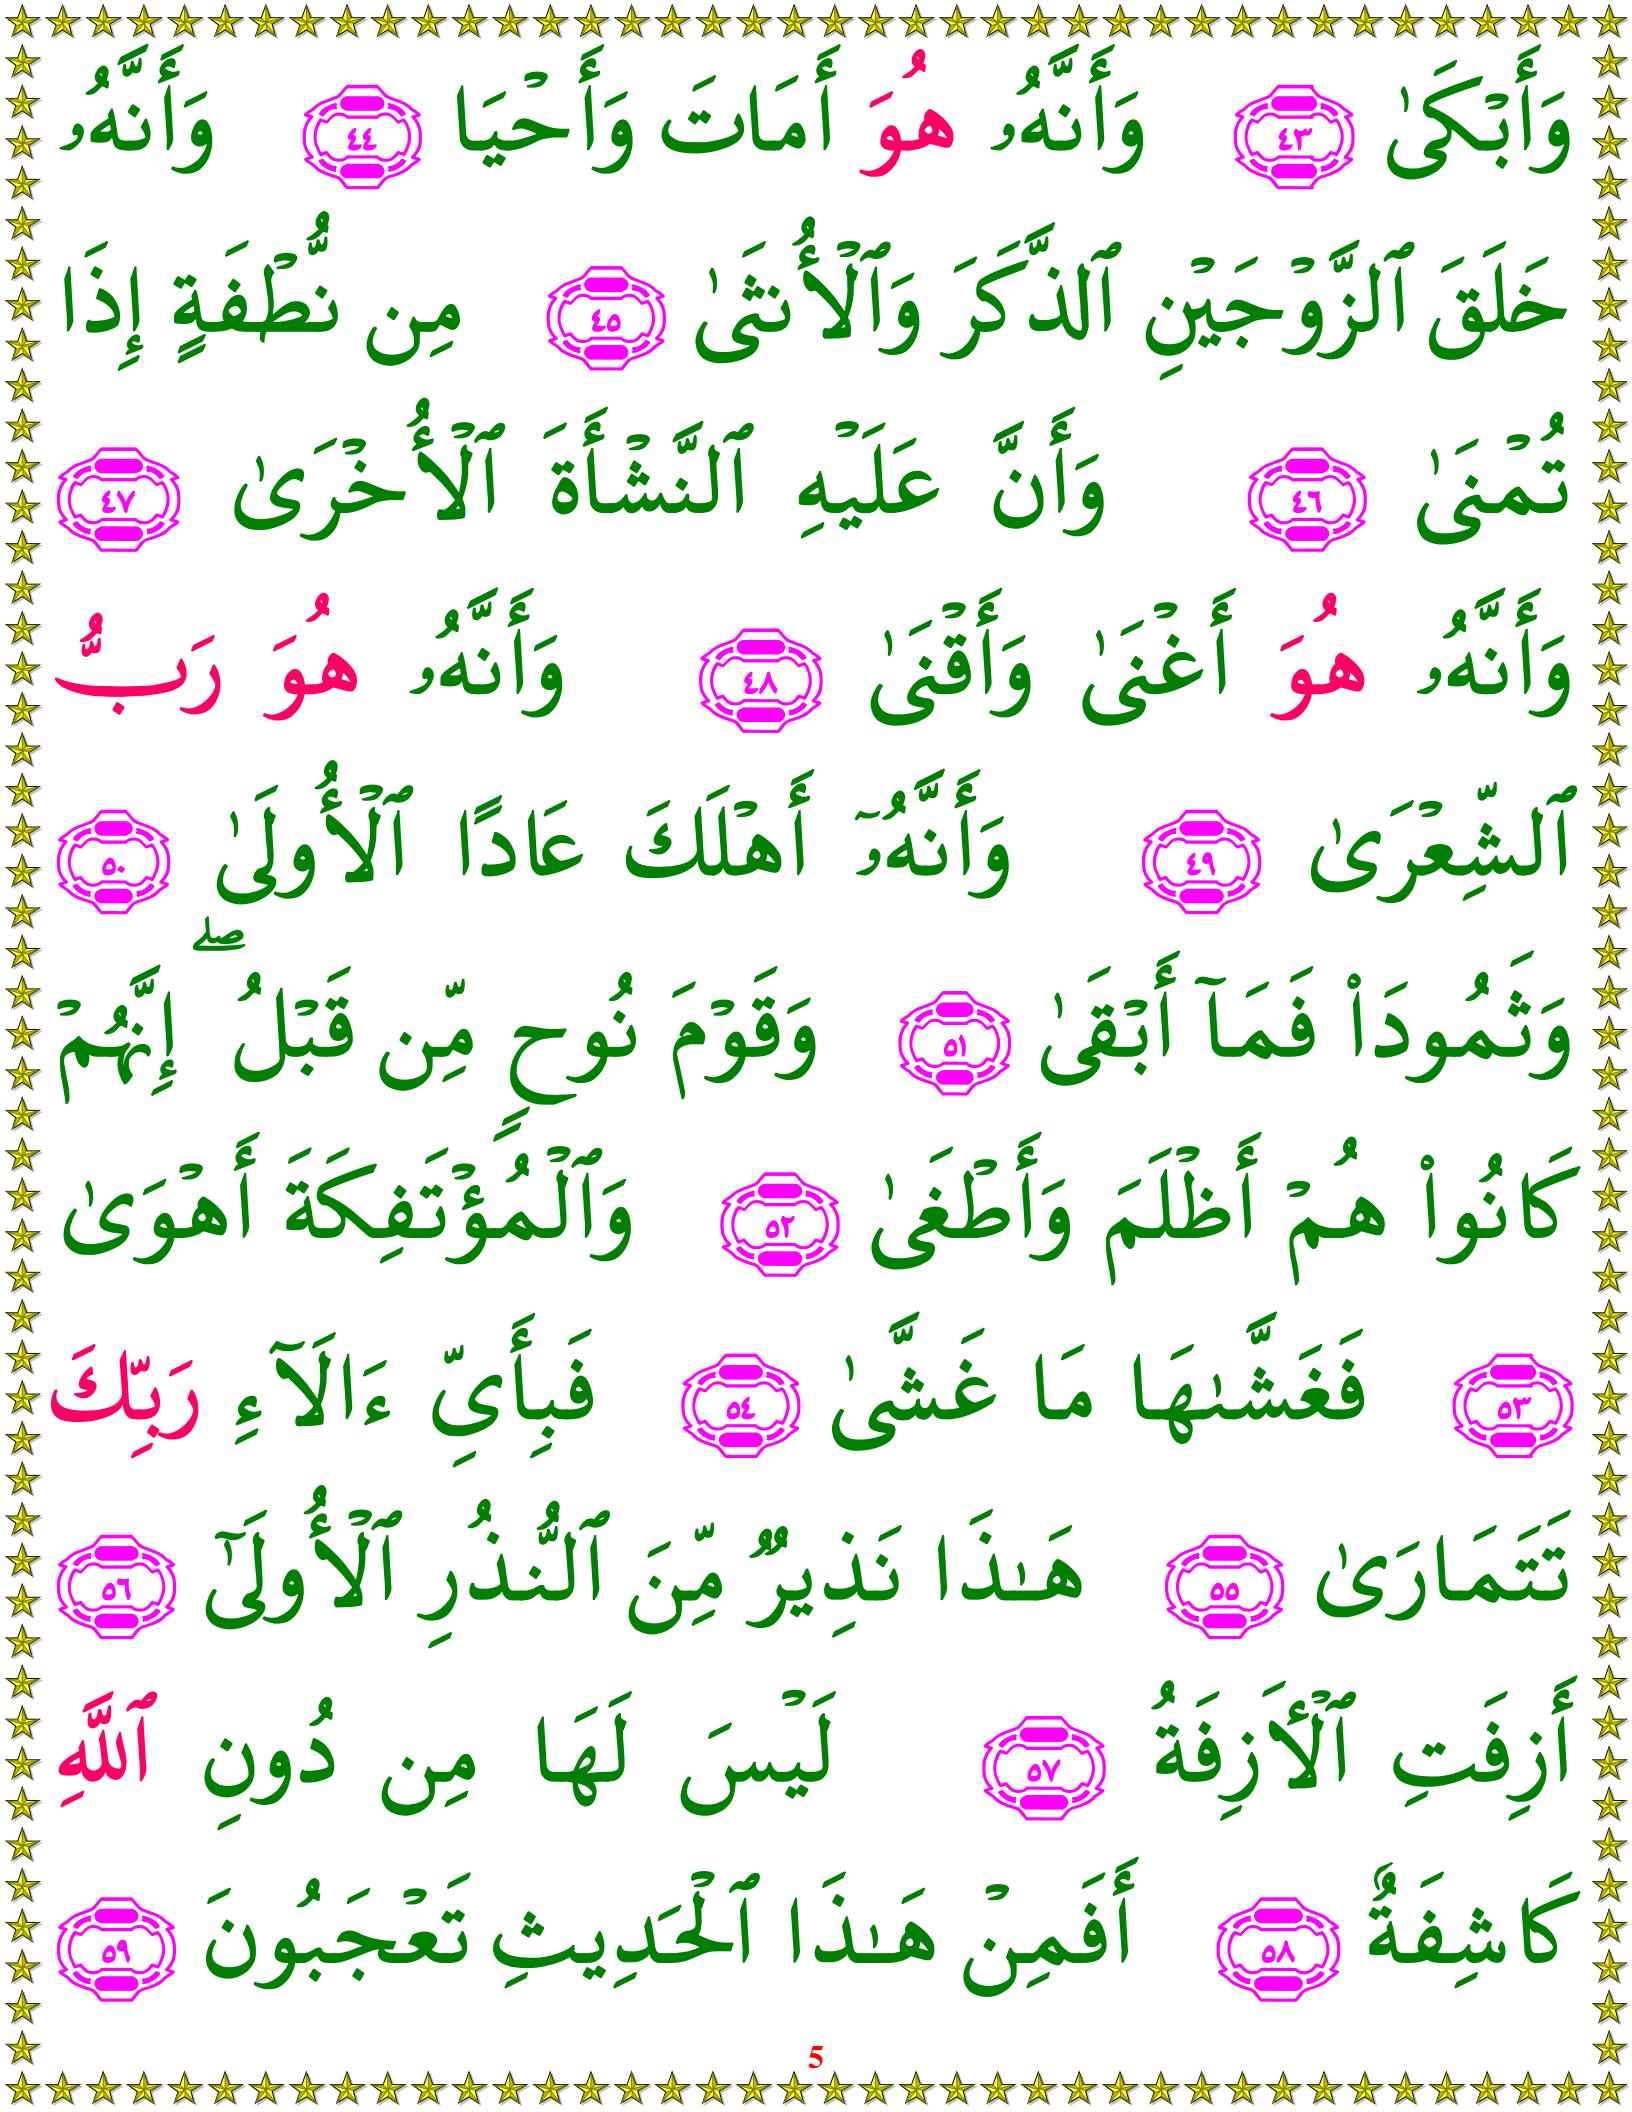 وَأَبْكَىٰ ٤٣ وَأَنَّهُۥ هُوَ أَمَاتَ وَأَحْيَا ٤٤ وَأَنَّهُۥ
خَلَقَ ٱلزَّوْجَيْنِ ٱلذَّكَرَ وَٱلْأُنثَىٰ ٤٥ مِن نُّطْفَةٍ إِذَا
تُمْنَىٰ ٤٦ وَأَنَّ عَلَيْهِ ٱلنَّشْأَةَ ٱلْأُخْرَىٰ ٤٧
وَأَنَّهُۥ هُوَ أَغْنَىٰ وَأَقْنَىٰ ٤٨ وَأَنَّهُۥ هُوَ رَبُّ
ٱلشِّعْرَىٰ ٤٩ وَأَنَّهُۥٓ أَهْلَكَ عَادًا ٱلْأُولَىٰ ٥٠
وَثَمُودَا۟ فَمَآ أَبْقَىٰ ٥١ وَقَوْمَ نُوحٍ مِّن قَبْلُ ۖ إِنَّهُمْ
كَانُوا۟ هُمْ أَظْلَمَ وَأَطْغَىٰ ٥٢ وَٱلْمُؤْتَفِكَةَ أَهْوَىٰ
٥٣ فَغَشَّىٰهَا مَا غَشَّىٰ ٥٤ فَبِأَىِّ ءَالَآءِ رَبِّكَ
تَتَمَارَىٰ ٥٥ هَـٰذَا نَذِيرٌ مِّنَ ٱلنُّذُرِ ٱلْأُولَىٰٓ ٥٦
أَزِفَتِ ٱلْأَزِفَةُ ٥٧ لَيْسَ لَهَا مِن دُونِ ٱللَّهِ
كَاشِفَةٌ ٥٨ أَفَمِنْ هَـٰذَا ٱلْحَدِيثِ تَعْجَبُونَ ٥٩
5